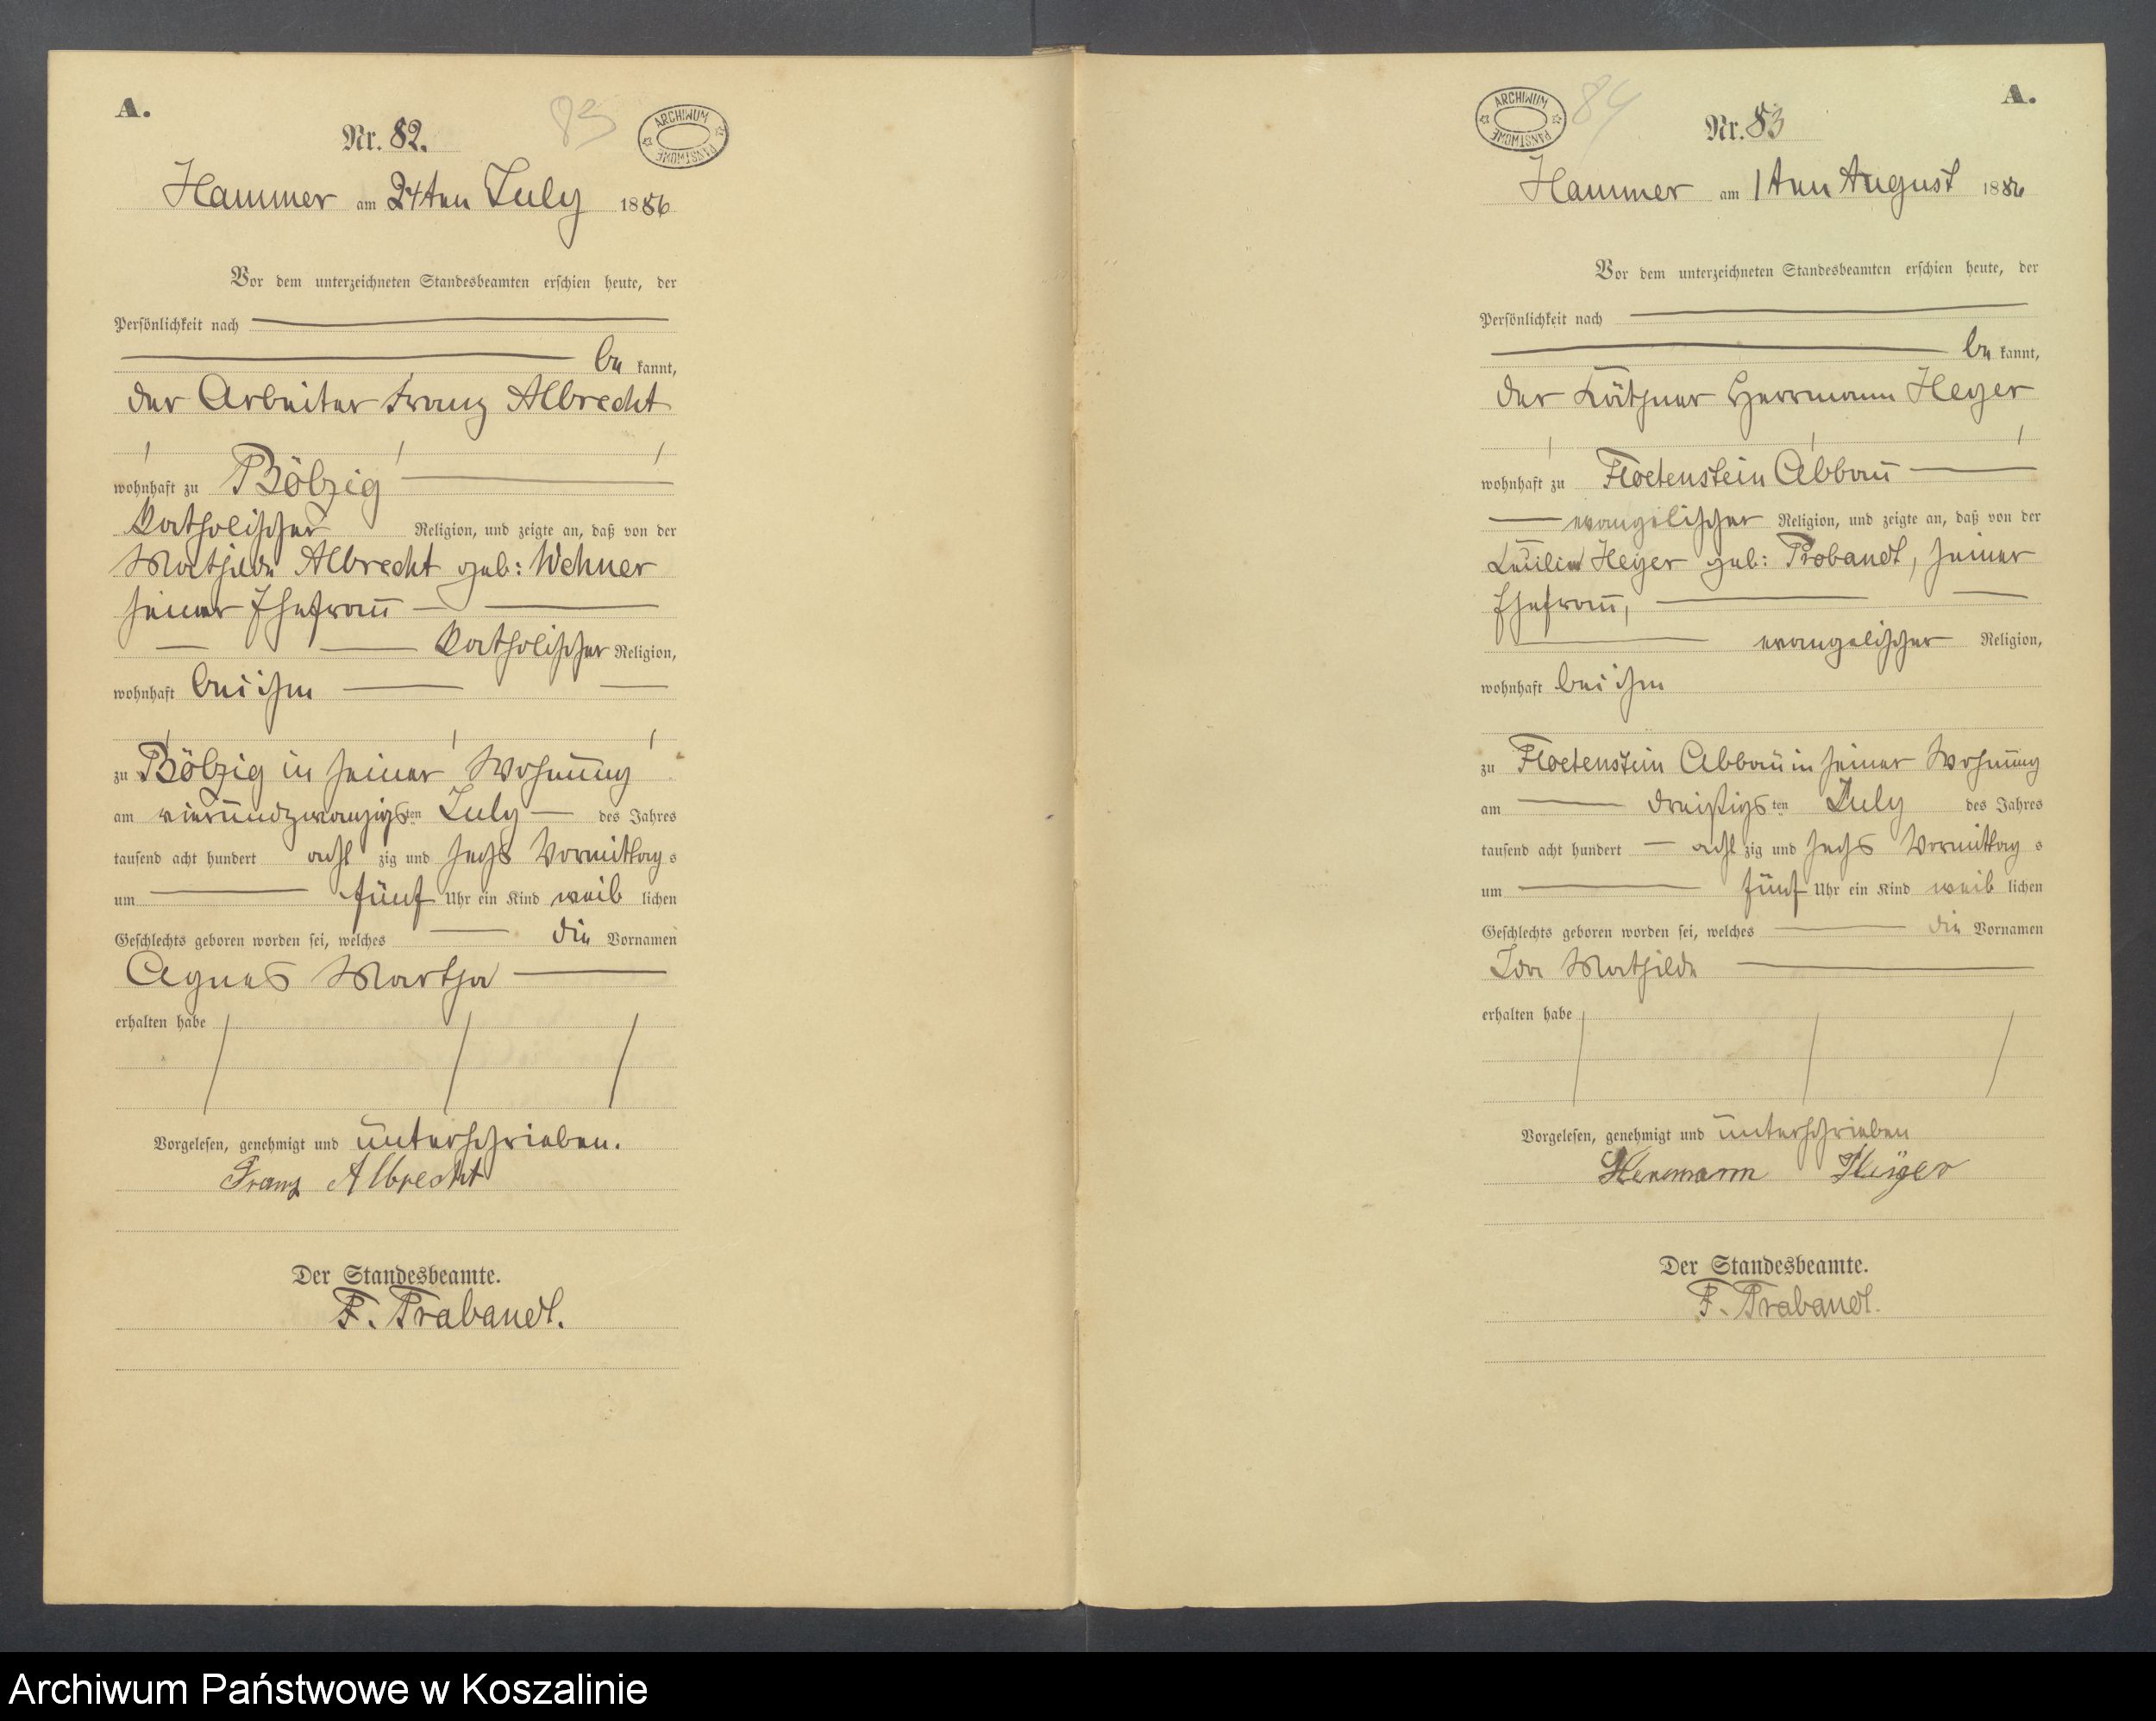 A.
Nr. 82.
83
ARCHIWUM PAŃSTWOWE
Hammer am 24ten July 1886
Vor dem unterzeichneten Standesbeamten erschien heute, der
Persönlichkeit nach
be kannt,
der Arbeiter Franz Albrecht
wohnhaft zu Bölzig
katholischer Religion, und zeigte an, daß von der
Mathilde Albrecht geb: Wehner
seiner Ehefrau
katholischer Religion,
wohnhaft bei ihm
zu Bölzig in seiner Wohnung
am vierundzwanzigsten July des Jahres
tausend acht hundert acht zig und sechs Vormittags
um fünf Uhr ein Kind weib lichen
Geschlechts geboren worden sei, welches die Vornamen
Agnes Martha
erhalten habe
Vorgelesen, genehmigt und unterschrieben.
Franz Albrecht
Der Standesbeamte.
F. Trabandt.
A.
ARCHIWUM PAŃSTWOWE
84
Nr. 83
Hammer am 1ten August 1886
Vor dem unterzeichneten Standesbeamten erschien heute, der
Persönlichkeit nach
be kannt,
der Käthner Herrmann Heyer
wohnhaft zu Floetenstein Abbau
evangelischer Religion, und zeigte an, daß von der
Heyer geb: seiner
Ehefrau,
evangelischer Religion,
wohnhaft bei ihm
zu Floetenstein Abbau in seiner Wohnung
am dreißigsten July des Jahres
tausend acht hundert acht zig und sechs Vormittags
um fünf Uhr ein Kind weib lichen
Geschlechts geboren worden sei, welches die Vornamen
Ida Mathilde
erhalten habe
Vorgelesen, genehmigt und unterschrieben
Herrmann Heÿer
Der Standesbeamte.
F. Trabandt.
Archiwum Państwowe w Koszalinie